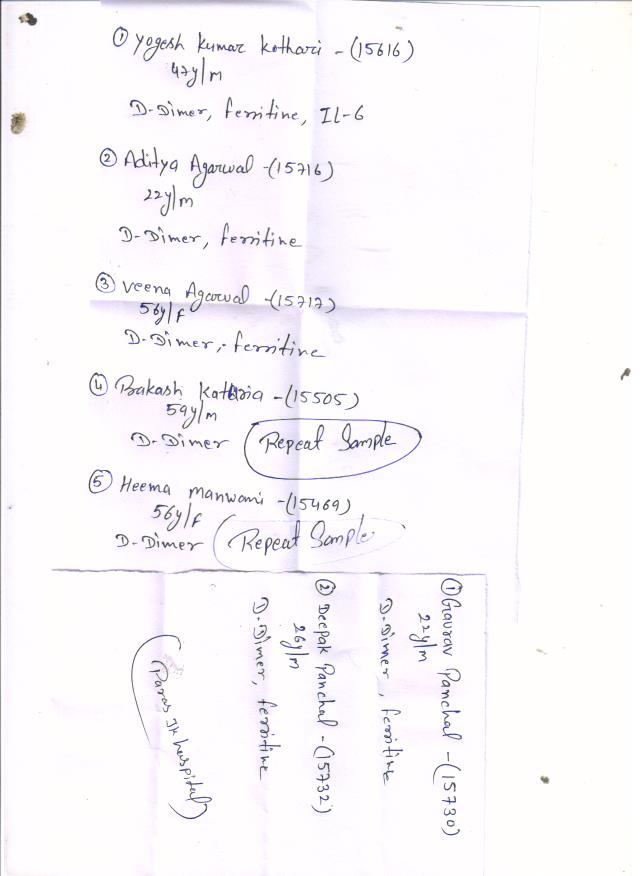 ① Yogesh Kumar Kothari - (15616)
47y/m
D-Dimer, ferritine, IL-6
② Aditya Agarwal - (15716)
22y/m
D-Dimer, ferritine
③ Veena Agarwal - (15717)
56y/f
D-Dimer, - ferritine
④ Prakash Kothria - (15505)
59y/m
D-Dimer (Repeat Sample
⑤ Heema Manwani - (15469)
56y/f
D-Dimer (Repeat Sample
① Gaurav Panchal - (15730)
22y/m
D-Dimer, ferritine
② Deepak Panchal - (15732)
26y/m
D-Dimer, ferritine
(Paras JK hospital)